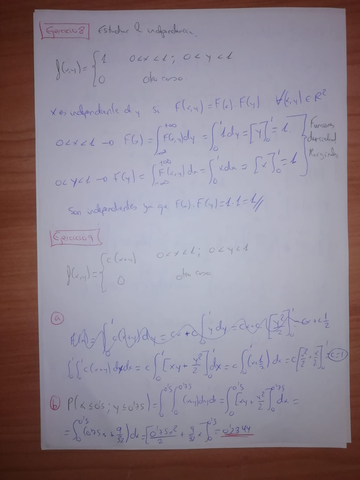 Ejercicio 8 Estudiar la independencia
f(x,y) = { 1 0<x<1; 0<y<1
0 otro caso
x es independiente de y si F(x,y)=F(x)·F(y) ∀(x,y)∈R²
0<x<1 → F(x) = ∫_{-∞}^{+∞} F(x,y)dy = ∫_0^1 1dy = [y]_0^1 = 1
0<y<1 → F(y) = ∫_{-∞}^{+∞} F(x,y)dx = ∫_0^1 1dx = [x]_0^1 = 1
Funciones densidad Marginales
Son independientes ya que F(x)·F(y)=1·1=1//
Ejercicio 9
f(x,y) = { c(x+y) 0<x<1; 0<y<1
0 otro caso
a
∫_0^1 c(x+y)dy = ∫_0^1 y dy = cx+c[y²/2]_0^1 = cx+c 1/2
∫_0^1 ∫_0^1 c(x+y)dydx = c∫_0^1 [xy+y²/2]_0^1 dx = c∫_0^1 (x+1/2)dx = c[x²/2+x/2]_0^1 = c=1
b P(x≤0'5; y≤0'75) = ∫_0^{0'5} ∫_0^{0'75} (x+y)dydx = ∫_0^{0'5} [xy+y²/2]_0^{0'75} dx =
= ∫_0^{0'5} (0'75x+9/32)dx = [0'75x²/2+9/32 x]_0^{0'5} = 0'2344